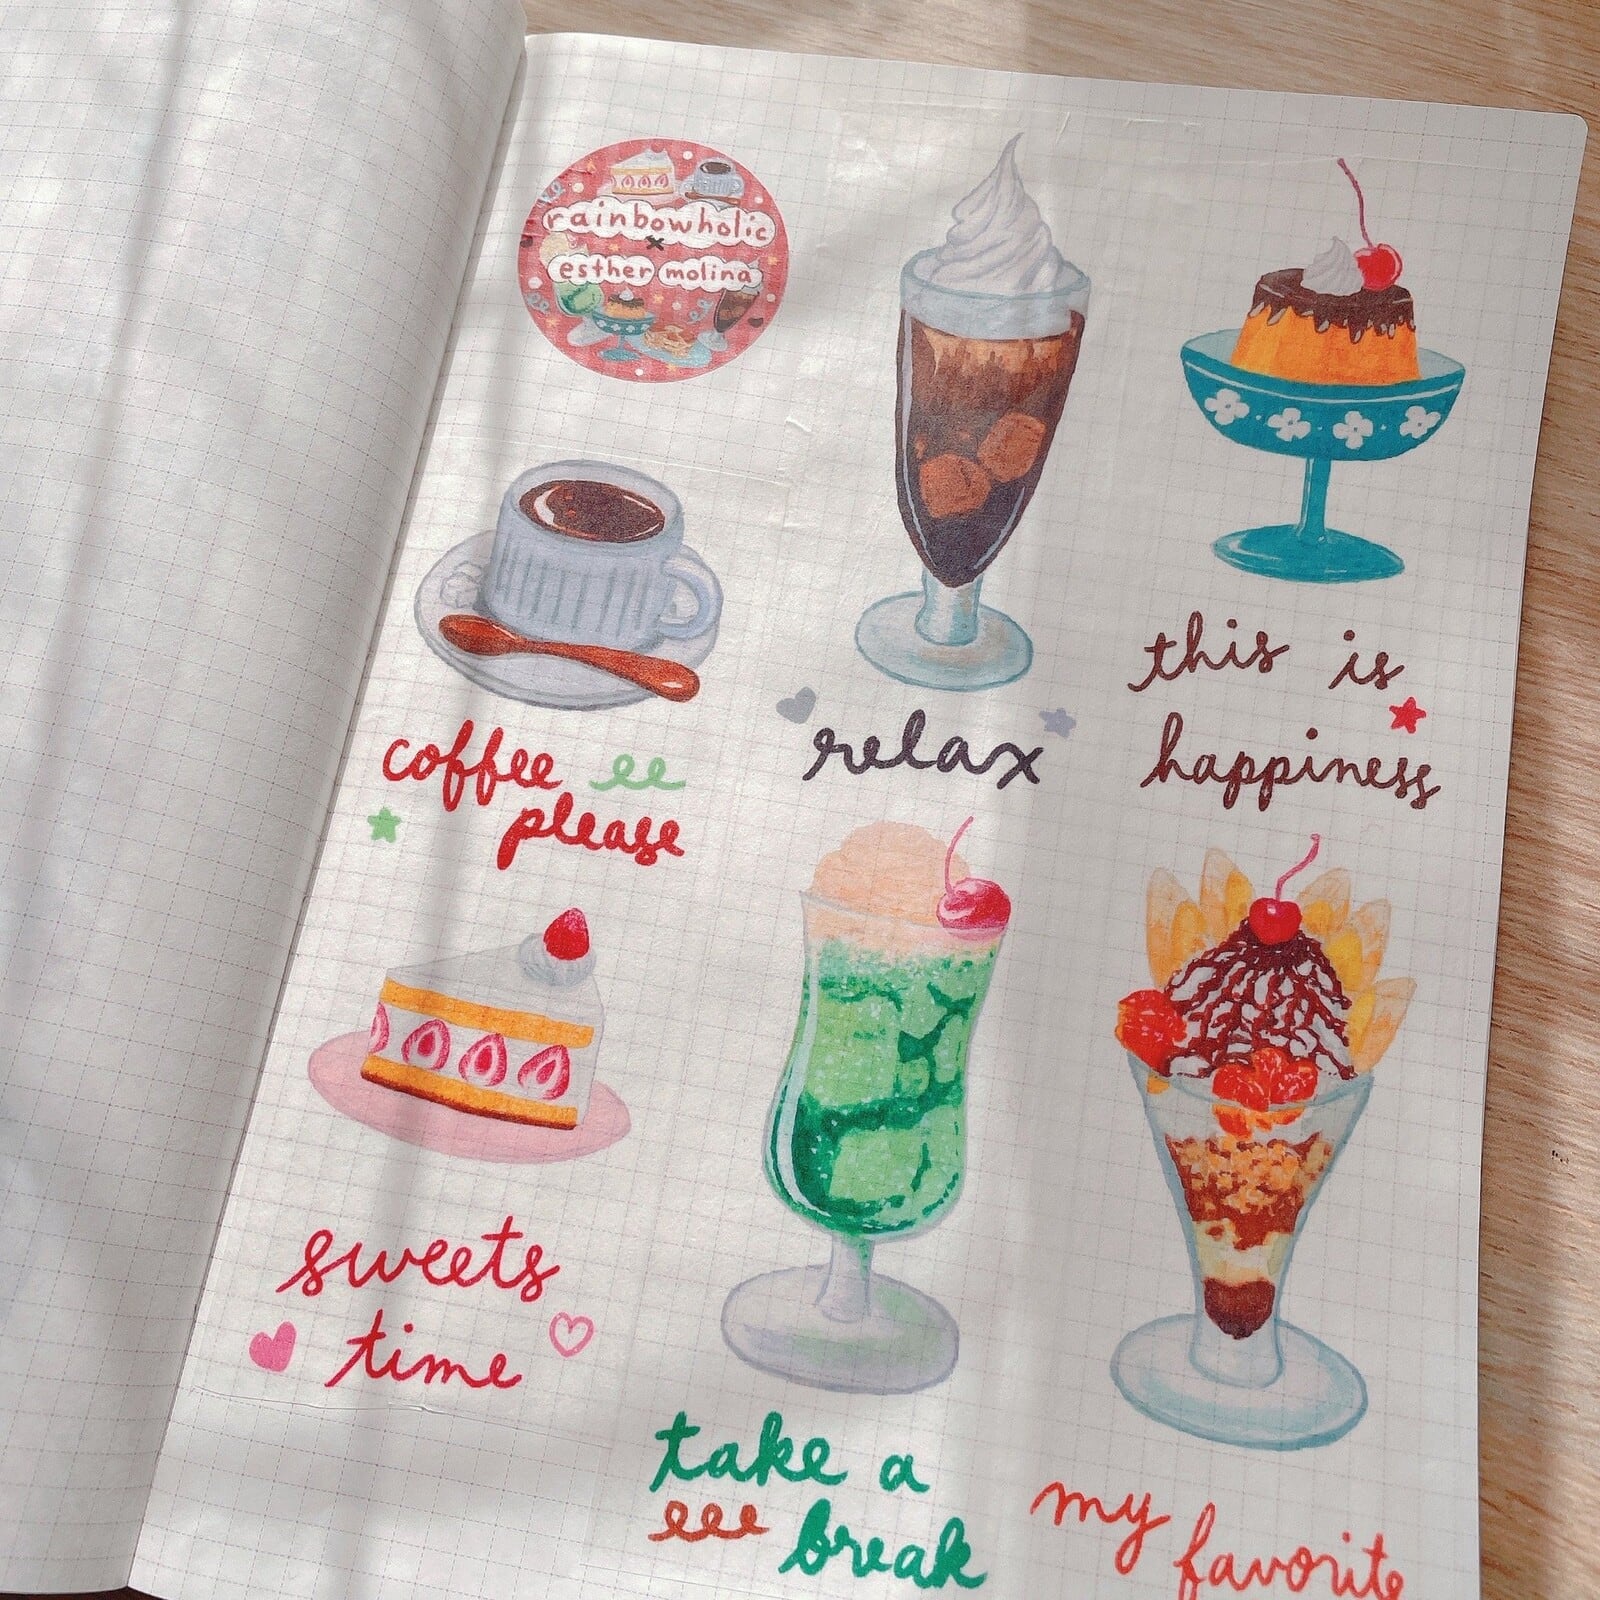 rainbowholic
x
esther molina
coffee
please
relax
this is
happiness
sweets
time
take a
break
my
favorite